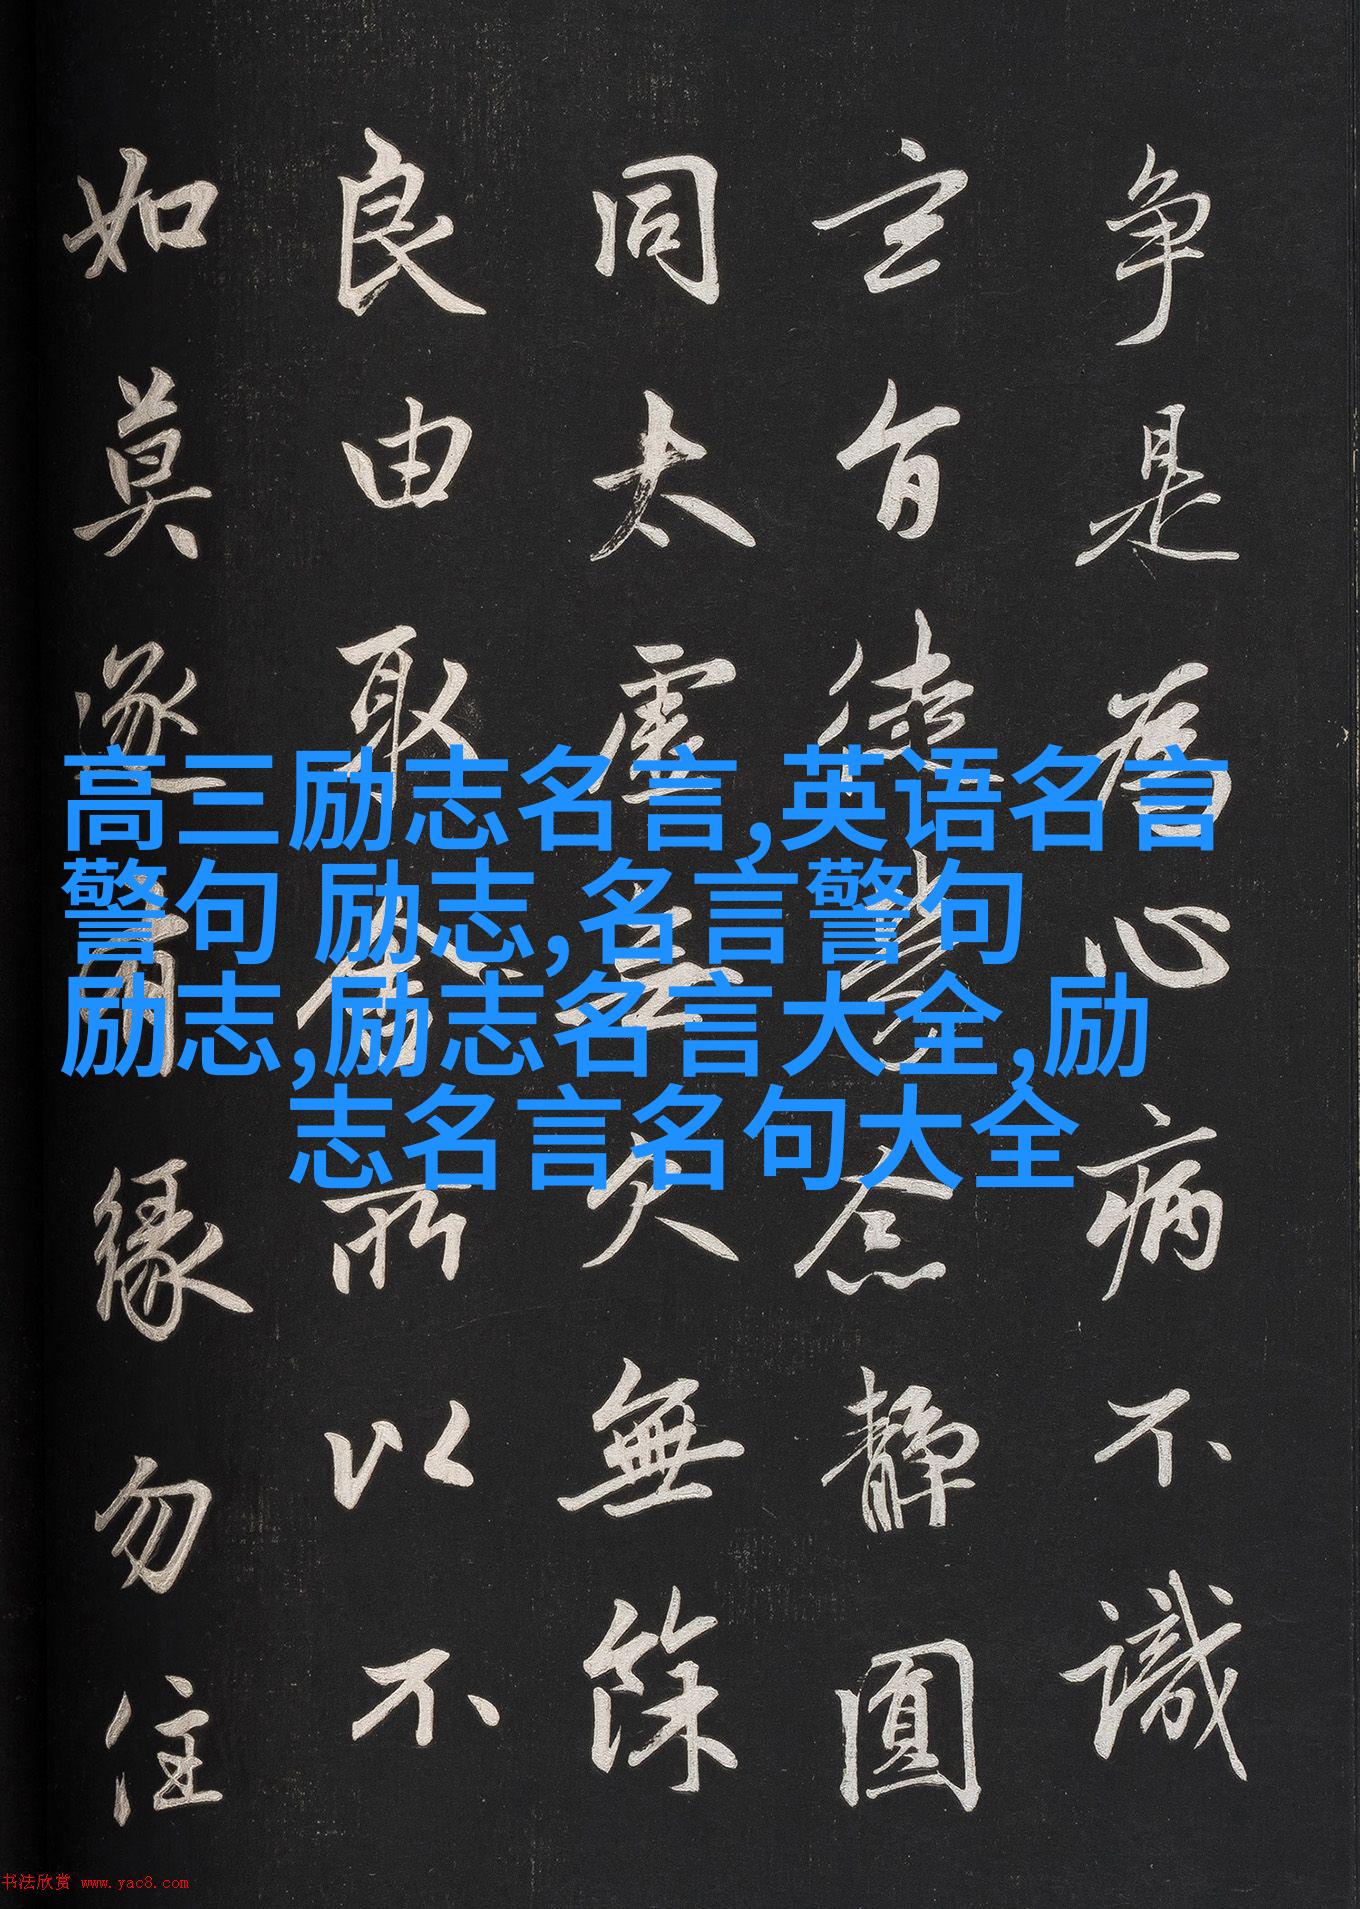 争是為心病不識
玄旨徒勞念靜圓
同太虛無欠無餘
良由取舍所以不
如莫逐有緣勿住
高三励志名言,英语名言
警句 励志,名言警句
励志,励志名言大全,励
志名言名句大全
书法欣赏 www.yac8.com